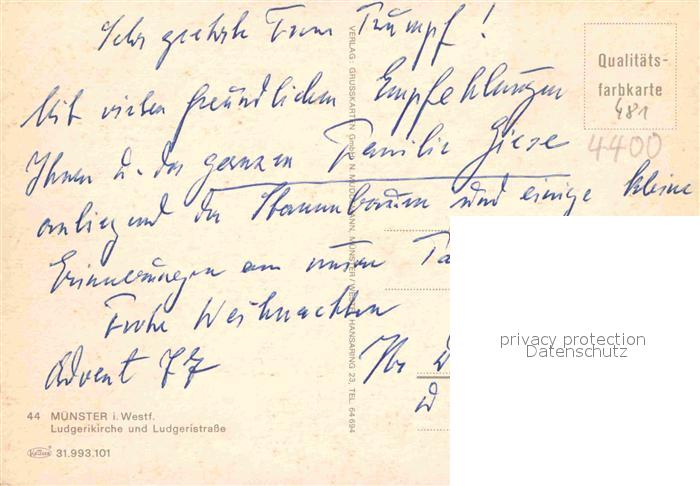 Sehr geehrte Frau Trumpf!
Mit vielen freundlichen Empfehlungen
Ihnen u. der ganzen Familie Giese
anliegend der Stammbaum und einige kleine
Erinnerungen an unsern
Frohe Weihnachten
Advent 77
Ihr
Qualitäts-
farbkarte
481
4400
VERLAG: GRUSSKARTEN GmbH N. MÜNSTER/WESTF. HANSARING 23, TEL. 64694
44 MÜNSTER i. Westf.
Ludgerikirche und Ludgeristraße
31.993.101
privacy protection
Datenschutz